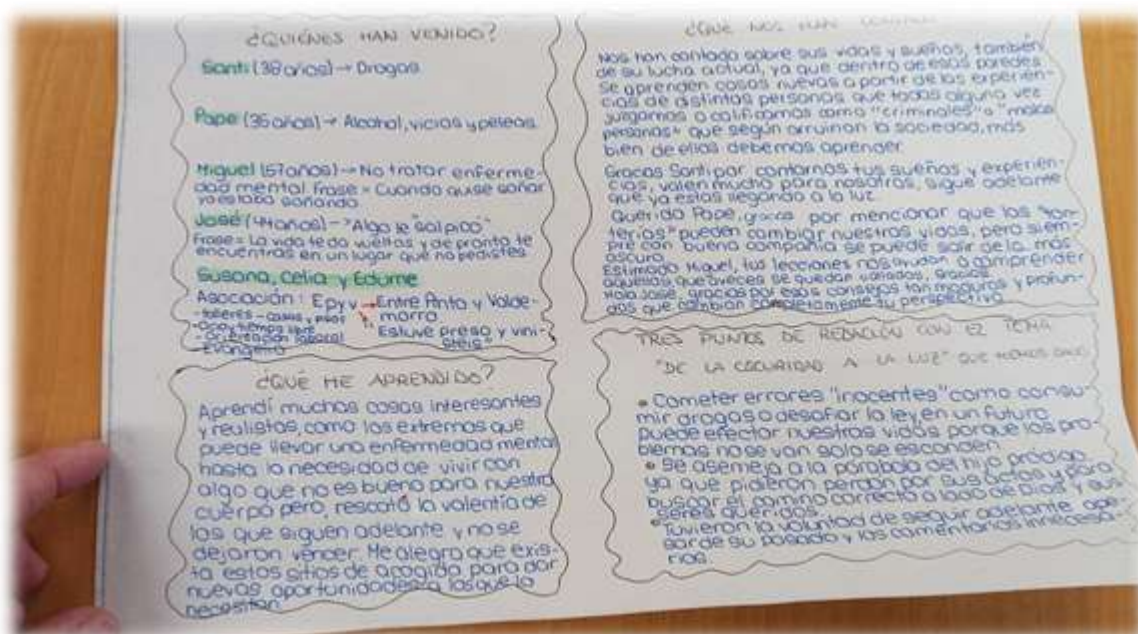 ¿QUIÉNES HAN VENIDO?
Santi (38 años) → Drogas
Pape (36 años) → Alcohol, vicios y peleas
Miguel (57 años) → No tratar enferme-
dad mental Frase = Cuando quise soñar
ya estaba soñando.
José (44 años) → "Algo le salpicó"
Frase = La vida te da vueltas y de pronto te
encuentras en un lugar que no pedistes
Susana, Celia y Edurne
Asociación: Epyv → Entre Pinto y Valde-
morro
- talleres - casas y pisos
- Ocio y tiempo libre
- Orientación laboral
- Evangelio
Estuve preso y vini-
steis"
¿QUÉ HE APRENDIDO?
Aprendí muchas cosas interesantes
y realistas, como los extremos que
puede llevar una enfermedad mental
hasta la necesidad de vivir con
algo que no es bueno para nuestro
cuerpo pero, rescató la valentía de
los que siguen adelante y no se
dejaron vencer. Me alegro que exis-
ta estos sitios de acogida para dar
nuevas oportunidades a los que lo
necesitan
¿QUÉ NOS HAN CONTADO?
Nos han contado sobre sus vidas y sueños, también
de su lucha actual, ya que dentro de esas paredes
se aprenden cosas nuevas a partir de las experien-
cias de distintas personas que todos alguna vez
juzgamos o calificamos como "criminales" o "malas
personas" que según arruinan la sociedad, más
bien de ellos debemos aprender.
Gracias Santi por contarnos tus sueños y experien-
cias, valen mucho para nosotros, sigue adelante
que ya estas llegando a la luz.
Querido Pape, gracias por mencionar que las "ton-
terías" pueden cambiar nuestras vidas, pero siem-
pre con buena compañía se puede salir de lo más
oscuro.
Estimado Miguel, tus lecciones nos ayudan a comprender
aquellas que aveces se quedan calladas, gracias.
Hola José, gracias por esos consejos tan maduros y profun-
dos que cambian completamente tu perspectiva.
TRES PUNTOS DE REDACCIÓN CON EL TEMA
"DE LA OSCURIDAD A LA LUZ" QUE HEMOS
• Cometer errores "inocentes" como consu-
mir drogas o desafiar la ley en un futuro
puede efectar nuestras vidas porque los pro-
blemas no se van solo se esconden.
• Se asemeja a la parábola del hijo pródigo
ya que pidieron perdón por sus actos y para
buscar el camino correcto a lado de Dios y sus
seres queridos.
• Tuvieron la voluntad de seguir adelante ape-
sar de su pasado y los comentarios inneces-
rios.